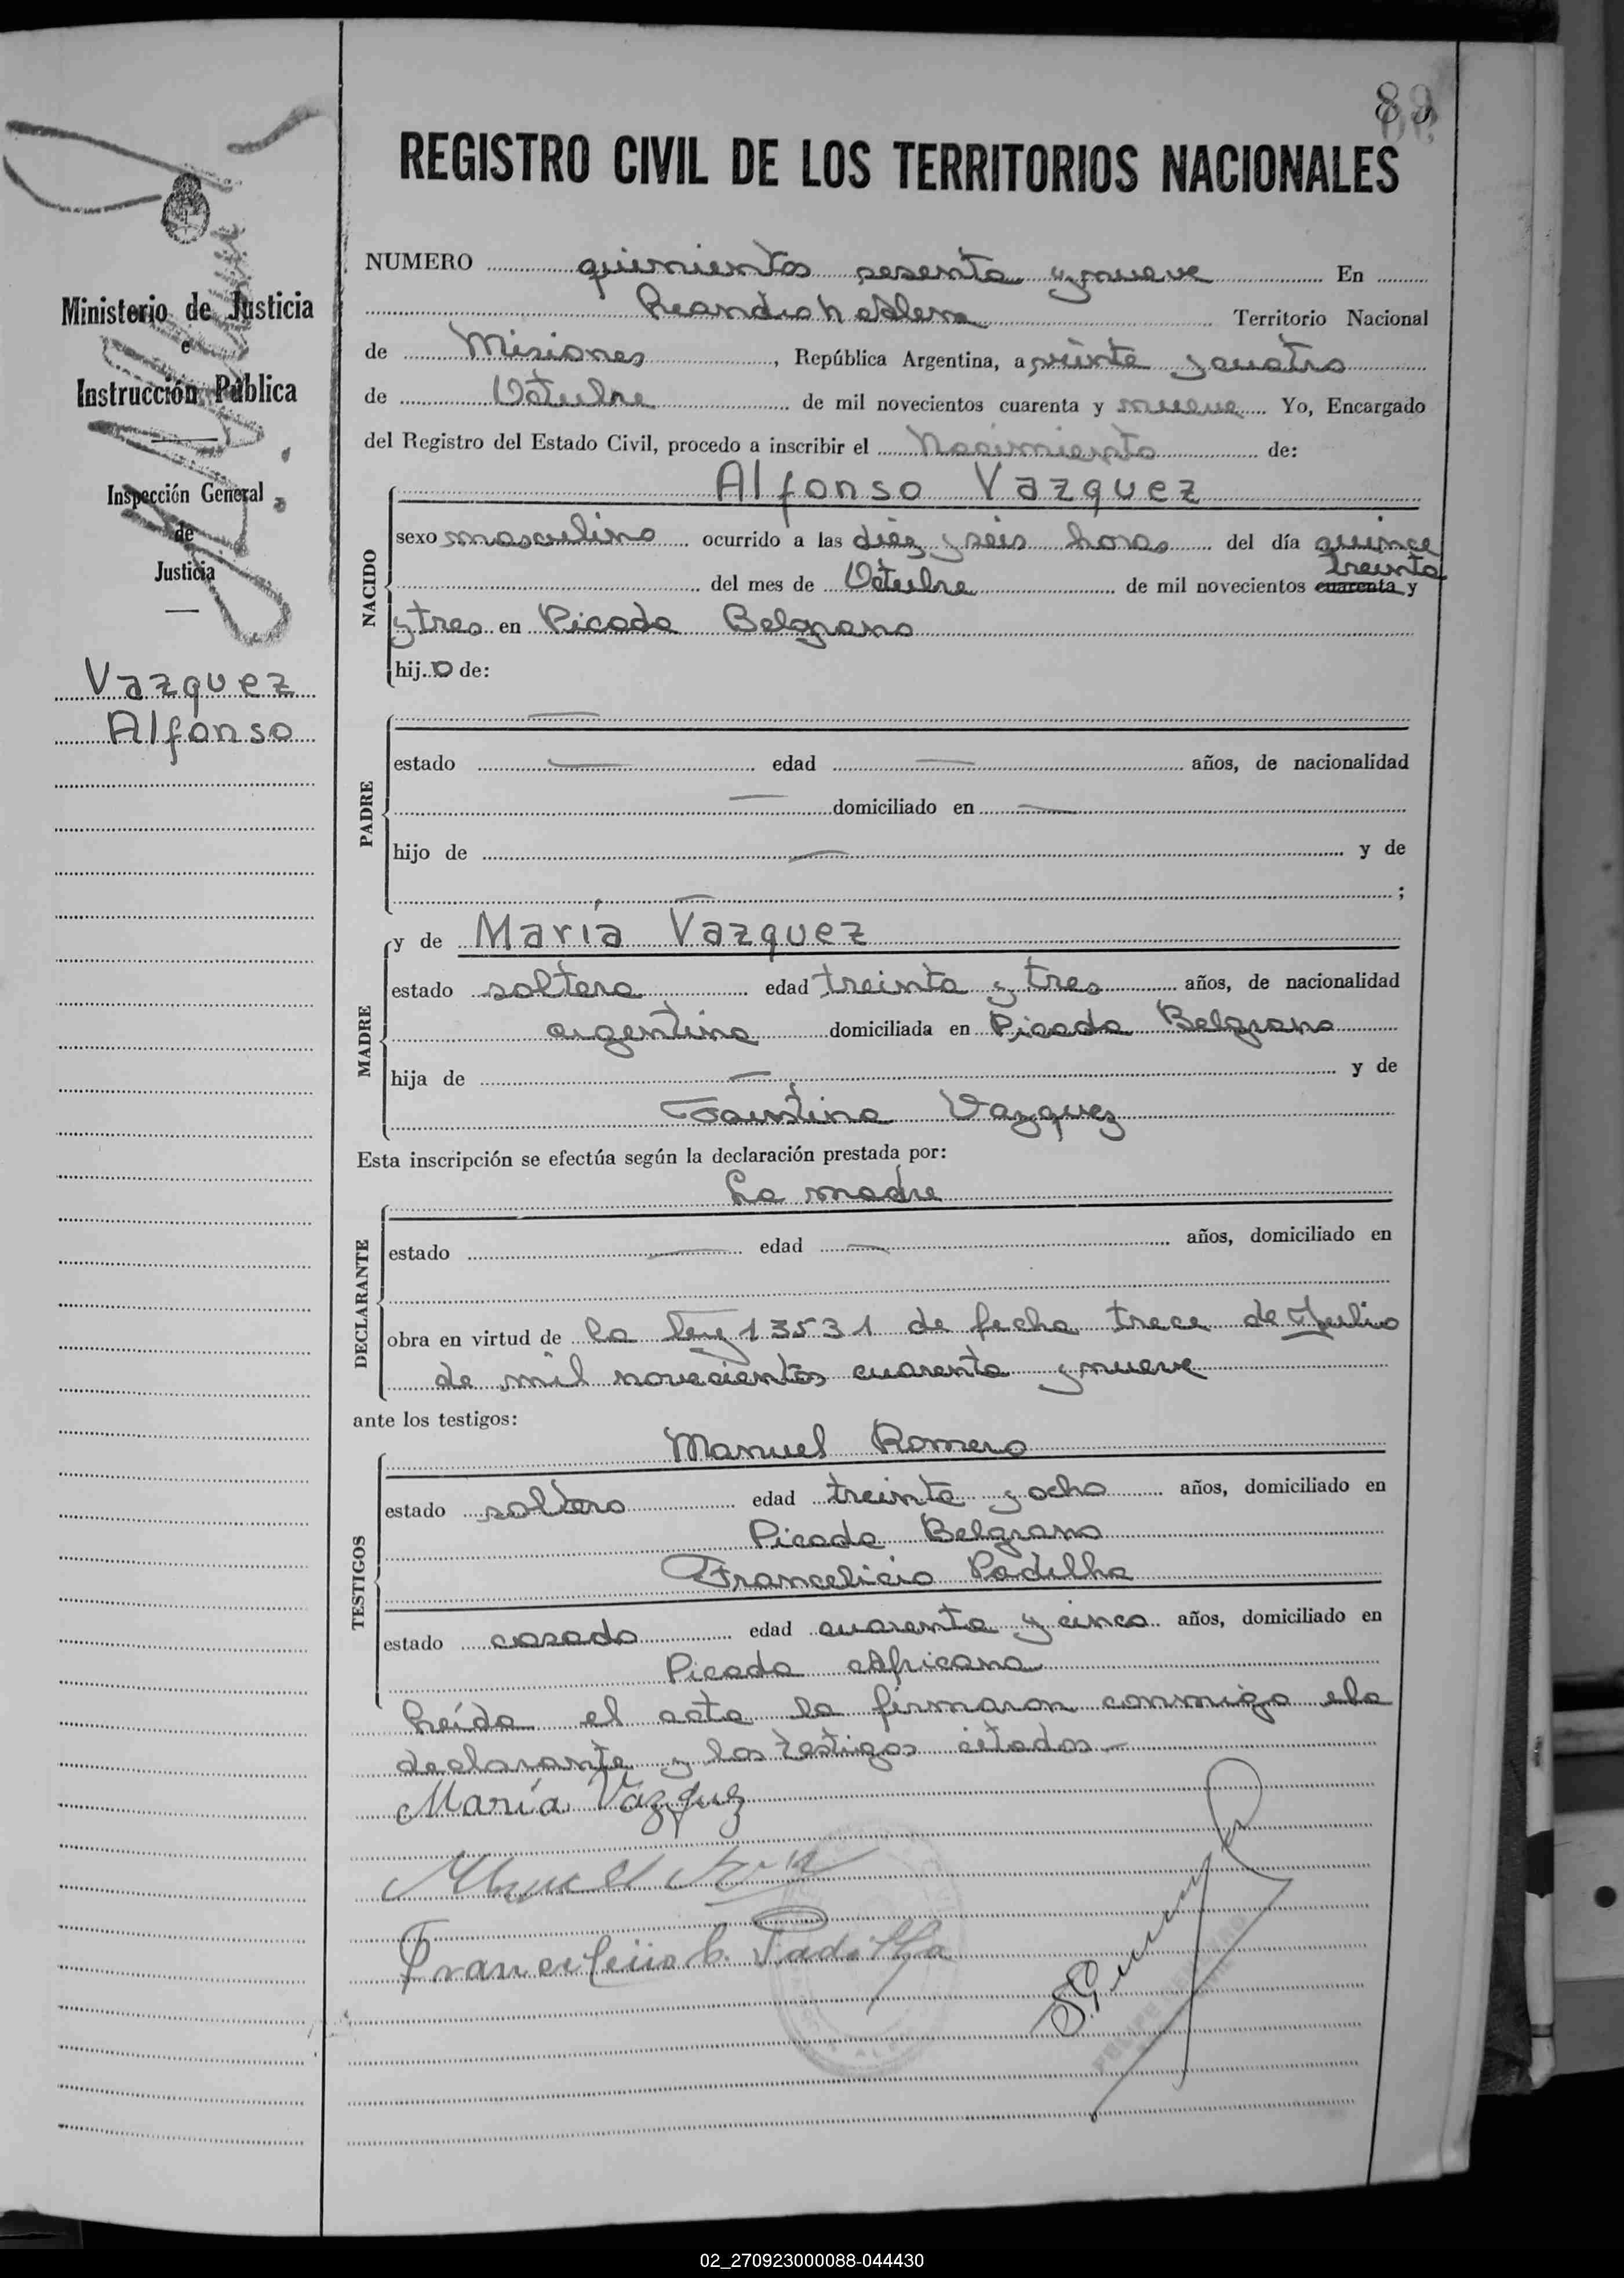 REGISTRO CIVIL DE LOS TERRITORIOS NACIONALES
NUMERO quinientos sesenta y nueve En
Leandro N Alem Territorio Nacional
de Misiones, República Argentina, a veinte y cuatro
de Octubre de mil novecientos cuarenta y nueve Yo, Encargado
del Registro del Estado Civil, procedo a inscribir el Nacimiento de:
Alfonso Vazquez
NACIDO
sexo masculino ocurrido a las diez y seis horas del día quince
treinta
del mes de Octubre de mil novecientos cuarenta y
y tres en Picada Belgrano
hijo de:
PADRE
estado edad años, de nacionalidad
domiciliado en
hijo de y de
;
MADRE
y de María Vazquez
estado soltera edad treinta y tres años, de nacionalidad
argentina domiciliada en Picada Belgrano
hija de y de
Faustina Vazquez
Esta inscripción se efectúa según la declaración prestada por:
La madre
DECLARANTE
estado edad años, domiciliado en
obra en virtud de la ley 13531 de fecha trece de Julio
de mil novecientos cuarenta y nueve
ante los testigos:
TESTIGOS
Manuel Romero
estado soltero edad treinta y ocho años, domiciliado en
Picada Belgrano
Francelicio Padilha
estado casado edad cuarenta y cinco años, domiciliado en
Picada Africana
Leída el acta la firmaron conmigo la
declarante y los testigos citados
María Vázquez
Padilha
Ministerio de Justicia
e
Instrucción Pública
Inspección General
de
Justicia
Vazquez
Alfonso
02_270923000088-044430